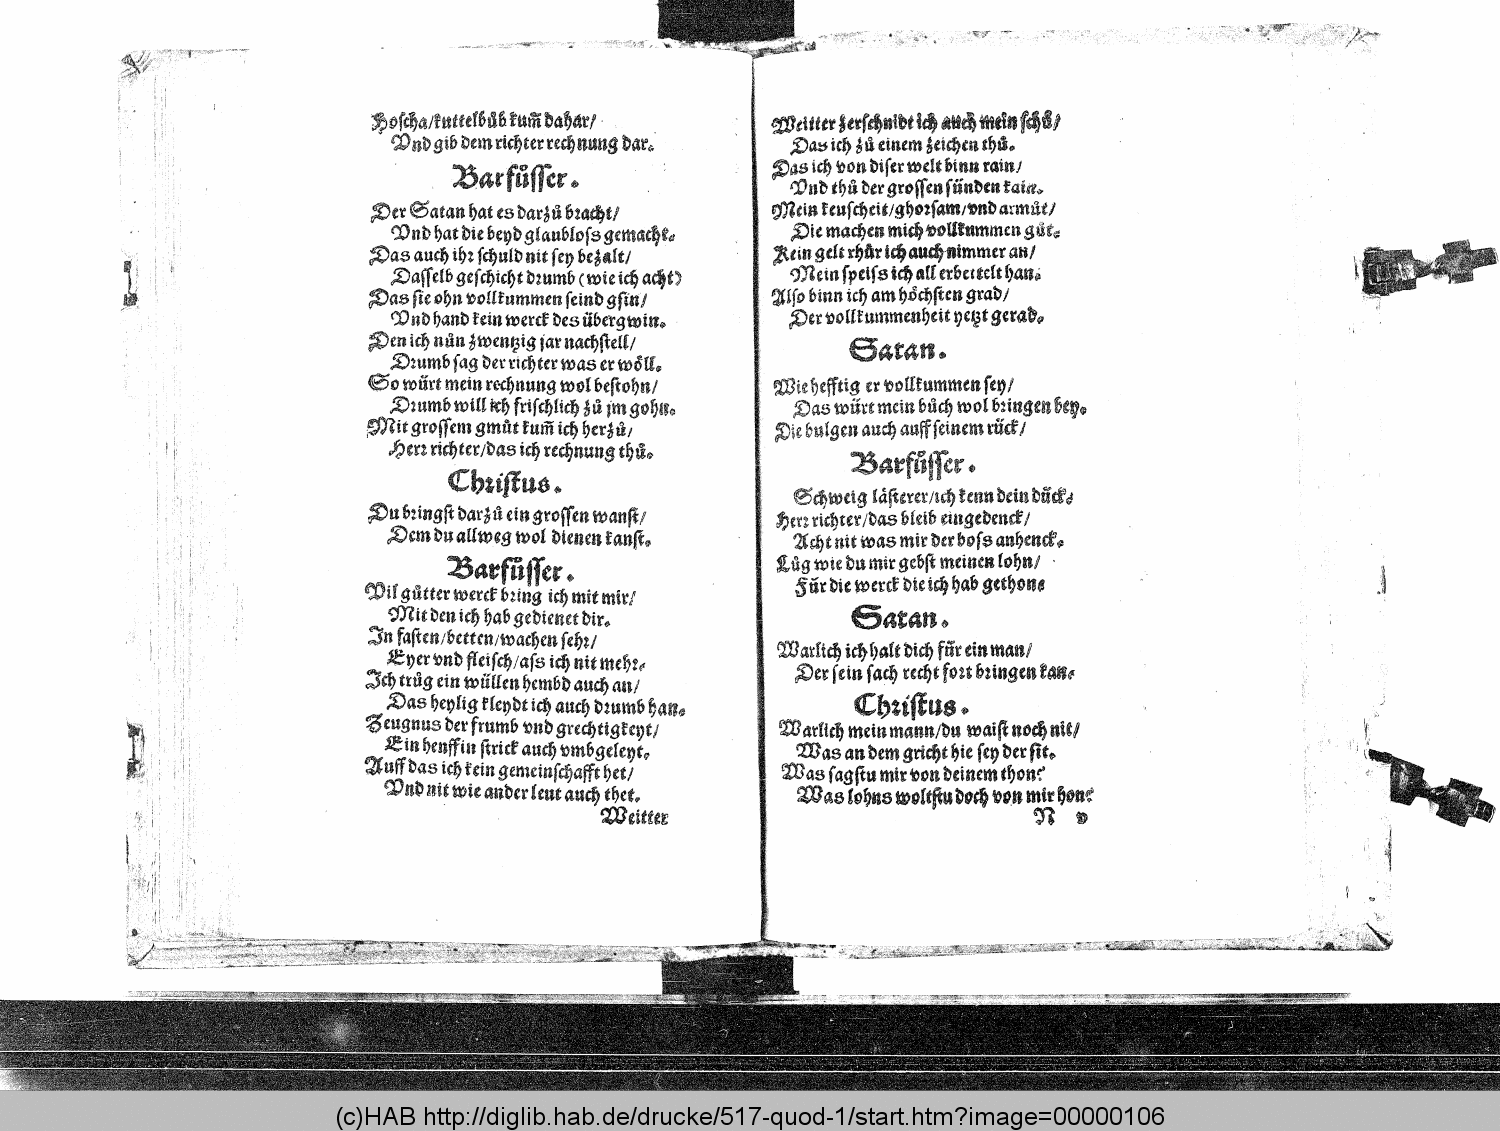 Hoscha/kuttelbůb kum̃ dahar/
Vnd gib dem richter rechnung dar.
Barfůsser.
Der Satan hat es darzů bracht/
Vnd hat die beyd glaubloſs gemacht.
Das auch ihr ſchuld nit ſey bezalt/
Daſſelb geſchicht drumb (wie ich acht)
Das ſie ohn vollkummen ſeind gſin/
Vnd hand kein werck des übergwin.
Den ich nůn zwentzig jar nachſtell/
Drumb ſag der richter was er wöll.
So würt mein rechnung wol beſtohn/
Drumb will ich friſchlich zů jm gohn.
Mit groſſem gmůt kum̃ ich herzů/
Herr richter/das ich rechnung thů.
Chriſtus.
Du bringſt darzů ein groſſen wanſt/
Dem du allweg wol dienen kanſt.
Barfůſſer.
Vil gůtter werck bring ich mit mir/
Mit den ich hab gedienet dir.
In faſten/betten/wachen ſehr/
Eyer vnd fleiſch/aſs ich nit mehr.
Ich trůg ein wüllen hembd auch an/
Das heylig kleydt ich auch drumb han.
Zeugnus der frumb vnd grechtigkeyt/
Ein henffin ſtrick auch vmbgeleyt.
Auff das ich kein gemeinſchafft het/
Vnd nit wie ander leut auch thet.
Weitter
Weitter zerſchnidt ich auch mein ſchů/
Das ich zů einem zeichen thů.
Das ich von diſer welt binn rain/
Vnd thů der groſſen ſünden kain.
Mein keuſcheit/ghorſam/vnd armůt/
Die machen mich vollkummen gůt.
Kein gelt rhůr ich auch nimmer an/
Mein ſpeiſs ich all erbettelt han.
Alſo binn ich am höchſten grad/
Der vollkummenheit yetzt gerad.
Satan.
Wie hefftig er vollkummen ſey/
Das würt mein bůch wol bringen bey.
Die bulgen auch auff ſeinem rück/
Barfůſſer.
Schweig läſterer/ich kenn dein dück.
Herr richter/das bleib eingedenck/
Acht nit was mir der boſs anhenck.
Lůg wie du mir gebſt meinen lohn/
Für die werck die ich hab gethon.
Satan.
Warlich ich halt dich für ein man/
Der ſein ſach recht fort bringen kan.
Chriſtus.
Warlich mein mann/du waiſt noch nit/
Was an dem gricht hie ſey der ſit.
Was ſagſtu mir von deinem thon?
Was lohns woltſtu doch von mir hon?
N v
(c)HAB http://diglib.hab.de/drucke/517-quod-1/start.htm?image=00000106